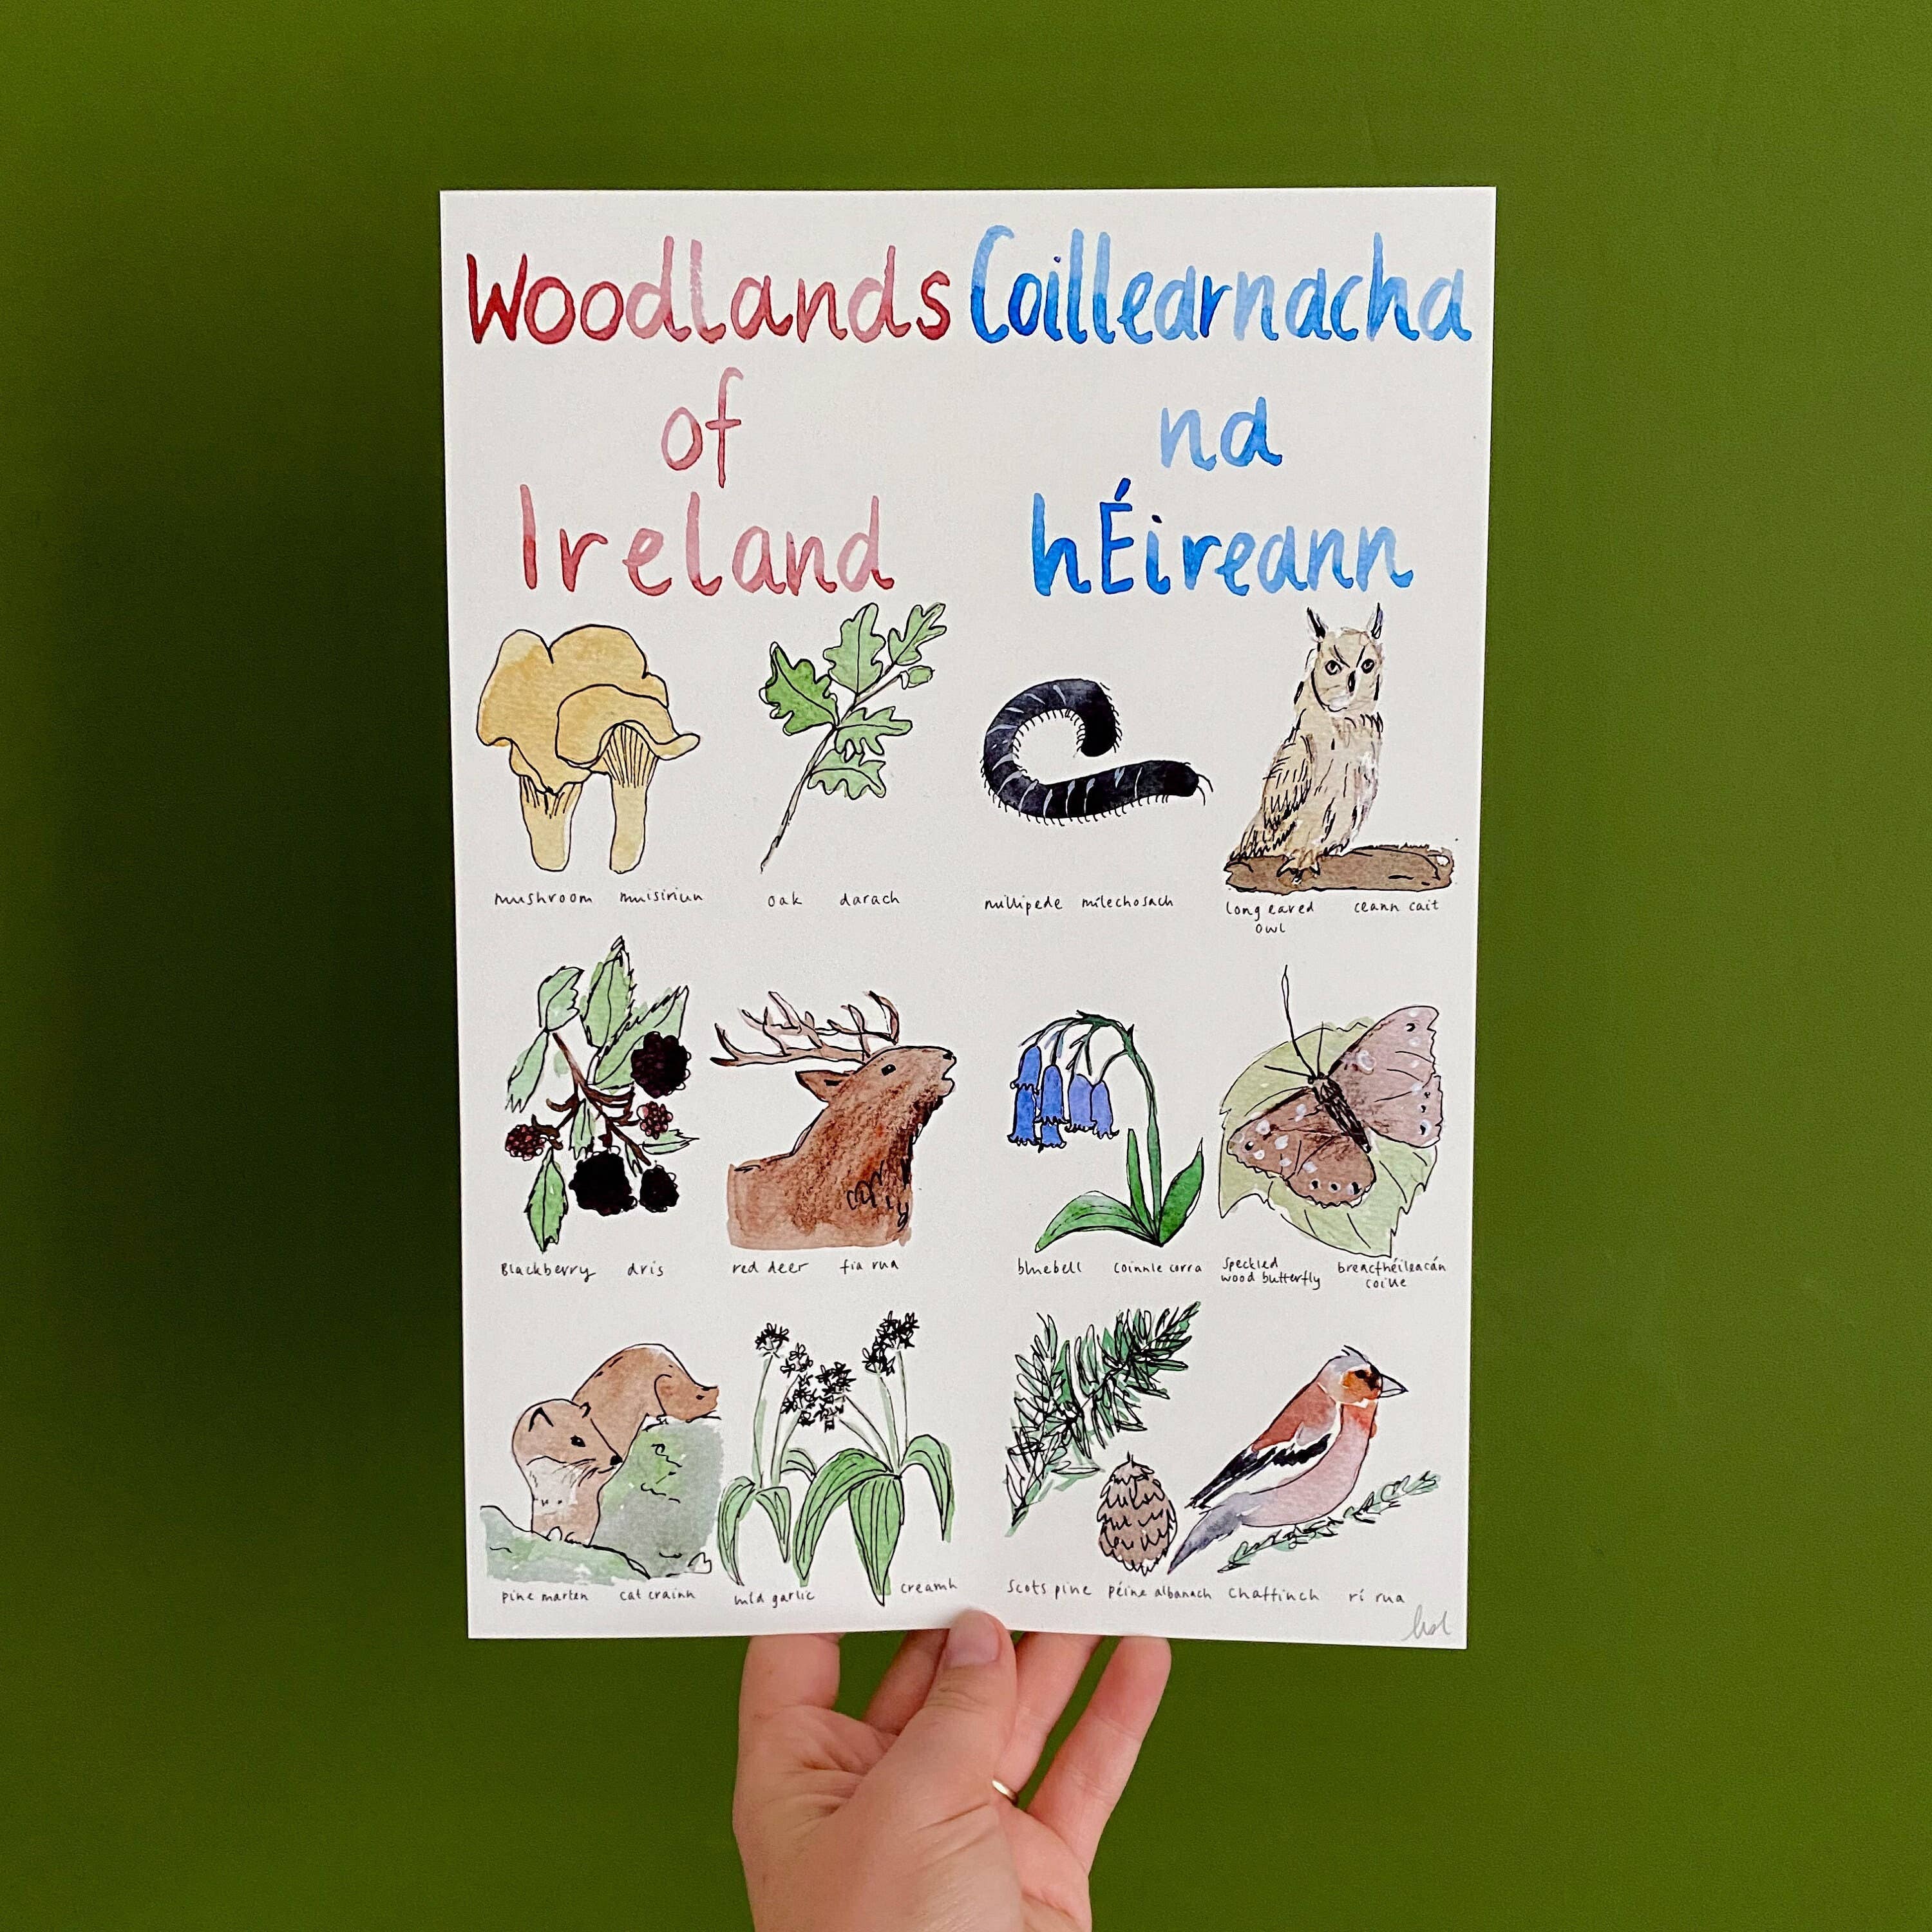 Woodlands
of
Ireland
Coillearnacha
na
hÉireann
mushroom muisiriun
oak darach
millipede mílechosach
long eared
owl
ceann cait
Blackberry dris
red deer fia rua
bluebell coinnle corra
speckled
wood butterfly
breacfhéileacán
coille
pine marten cat crainn
wild garlic creamh
scots pine péine albanach
chaffinch rí rua